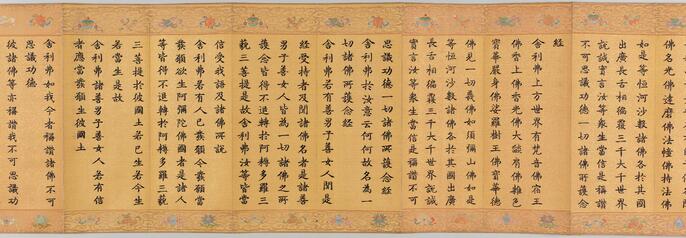 佛名光佛達磨佛法幢佛持法佛
如是等恒河沙數諸佛各於其國
出廣長舌相徧覆三千大千世界
說誠實言汝等衆生當信是稱讚
不可思議功德一切諸佛所護念
經
舍利弗上方世界有梵音佛宿王
佛香上佛香光佛大燄肩佛雜色
寶華嚴身佛娑羅樹王佛寶華德
佛見一切義佛如須彌山佛如是
等恒河沙數諸佛各於其國出廣
長舌相徧覆三千大千世界說誠
實言汝等衆生當信是稱讚不可
思議功德一切諸佛所護念經
舍利弗於汝意云何何故名為一
切諸佛所護念經
舍利弗若有善男子善女人聞是
經受持者及聞諸佛名者是諸善
男子善女人皆為一切諸佛之所
護念皆得不退轉於阿耨多羅三
藐三菩提是故舍利弗汝等皆當
信受我語及諸佛所說
舍利弗若有人已發願今發願當
發願欲生阿彌陀佛國者是諸人
等皆得不退轉於阿耨多羅三藐
三菩提於彼國土若已生若今生
若當生是故
舍利弗諸善男子善女人若有信
者應當發願生彼國土
舍利弗如我今者稱讚諸佛不可
思議功德
彼諸佛等亦稱讚我不可思議功